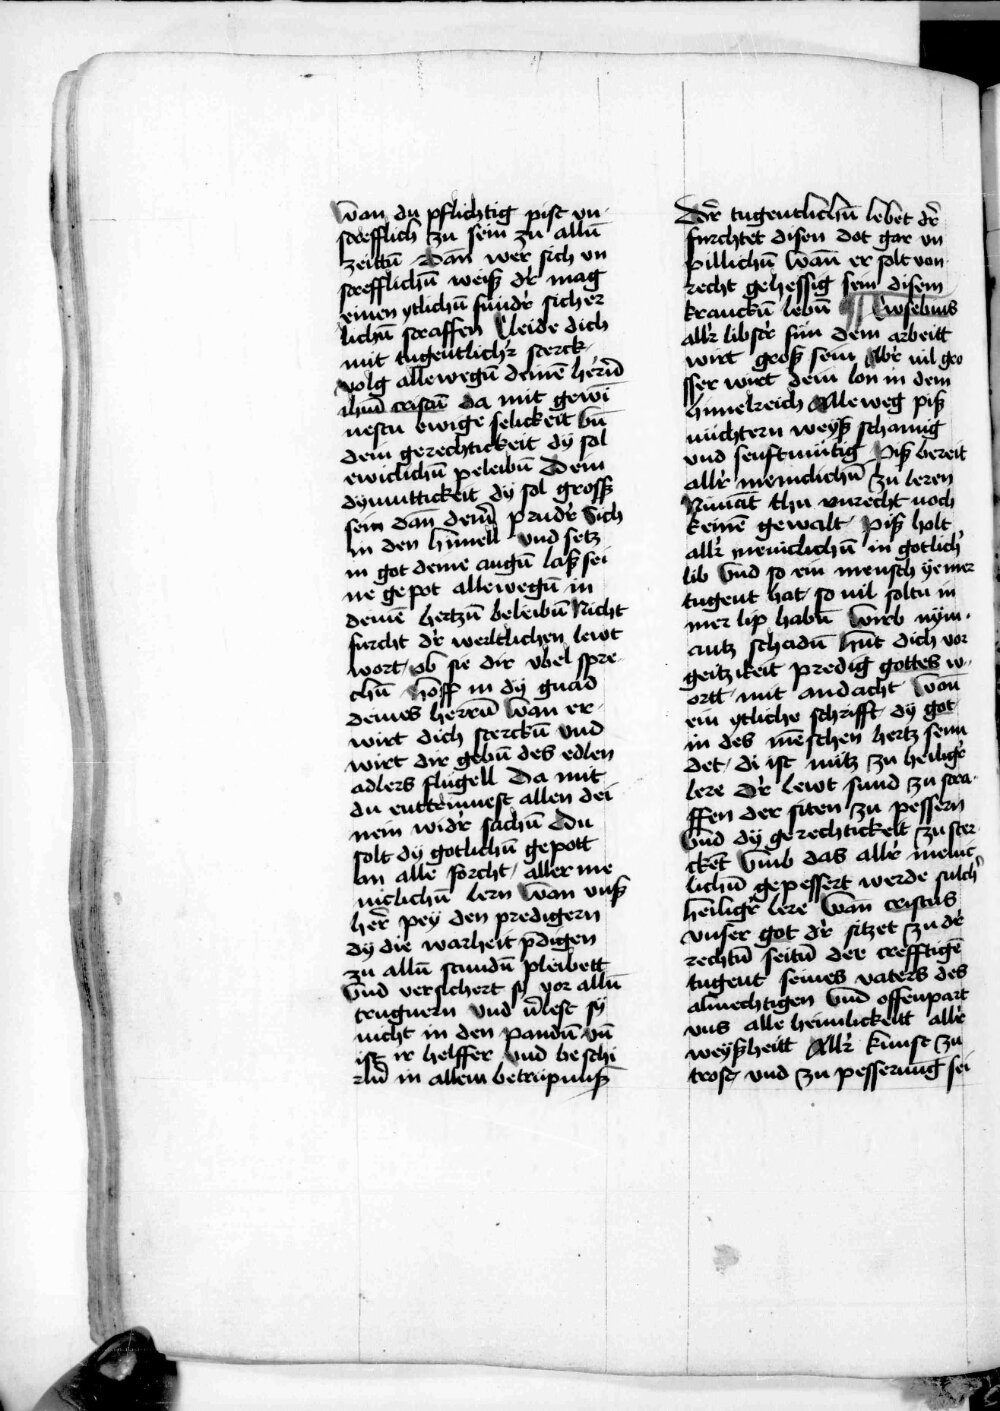 wan du pflichtig pist vn¬
strefflich zu sein zu allñ
zeittñ Dan wer sich vn
strefflichñ weiß dr mag
einen ytlichñ sundr sicher
lichñ straffen Cleide dich
mit tugentlichr sterck
volg allewegñ deinē herñ
ihũ cristũ da mit gewī
nestu ewige selickeit vñ
dein gerechtickeit dy sol
ewiclichñ peleibñ Dein
dymuttickeit dy sol grosß
sein dañ deinr prudr Sich
in den himell vnd setz
in got deine augñ laß sei
ne gepot allewegñ in
deinē hertzñ beleibñ Nicht
furcht dr werltlichen lewt
wort ob sie dir vbel spre
chñ Hoff in dy gnad
deines herrñ wan er
wirt dich sterckñ vnd
wirt dir gebñ des edlen
adlers flugell Da mit
du enttrinnest allen dei
nein widr sachñ Du
solt dy gotlichñ gepott
an alle forcht aller me
niclichñ lern wan vnß
her̄ pey den predigern
dy die warheit p̄digen
zu allñ stundñ pleibett
vnd versichert sy vor allñ
trugnern vnd v̄lest sy
nicht in den pandñ vñ
ist ir helffer vnd beschi
rm̄ in allem betrupnuß
Der tugentlichñ lebet dr
furchtet disen dot gar vn
pillichñ wañ er solt von
recht gehessig sein disem
kranckñ lebñ ¶ Ewsebius
allr libstr sun dem arbeitt
wirt groß sein Abr vil gro
sser wirt dein lon in dem
himelreich Alleweg piß
nüchtern weyß schamig
vnd senftmütig Piß bereit
allr meniclichñ zu leren
Nimāt thu vnrecht noch
keinē gewalt piß holt
allr meniclichñ in gotlichr
lib vnd so ein mensch ye mer
tugent hat so vil soltu in
mer lip habñ wirb nym
antz schadñ Hüt dich vor
geitzikeit predig gottes w
ortt mit andacht wañ
ein ytliche schrifft dy got
in des mēschen hertz senn
det di ist nütz zu heiligr
lere Dr lewt sund zu stra
ffen der siten zu pessern
vnd dy gerechtickeit zu ster
ckēt vmb das allr menic
lichñ gepessert werde sulchr
heiligr lere wan cristus
vnser got dr sitzet zu dr
rechtñ seitñ der crefftigē
tugent seines vaters des
almechtigen vnd offenpart
vns alle heimlickeitt allr
weyßheitt Allr kunst zu
trost vnd zu pesserung sei